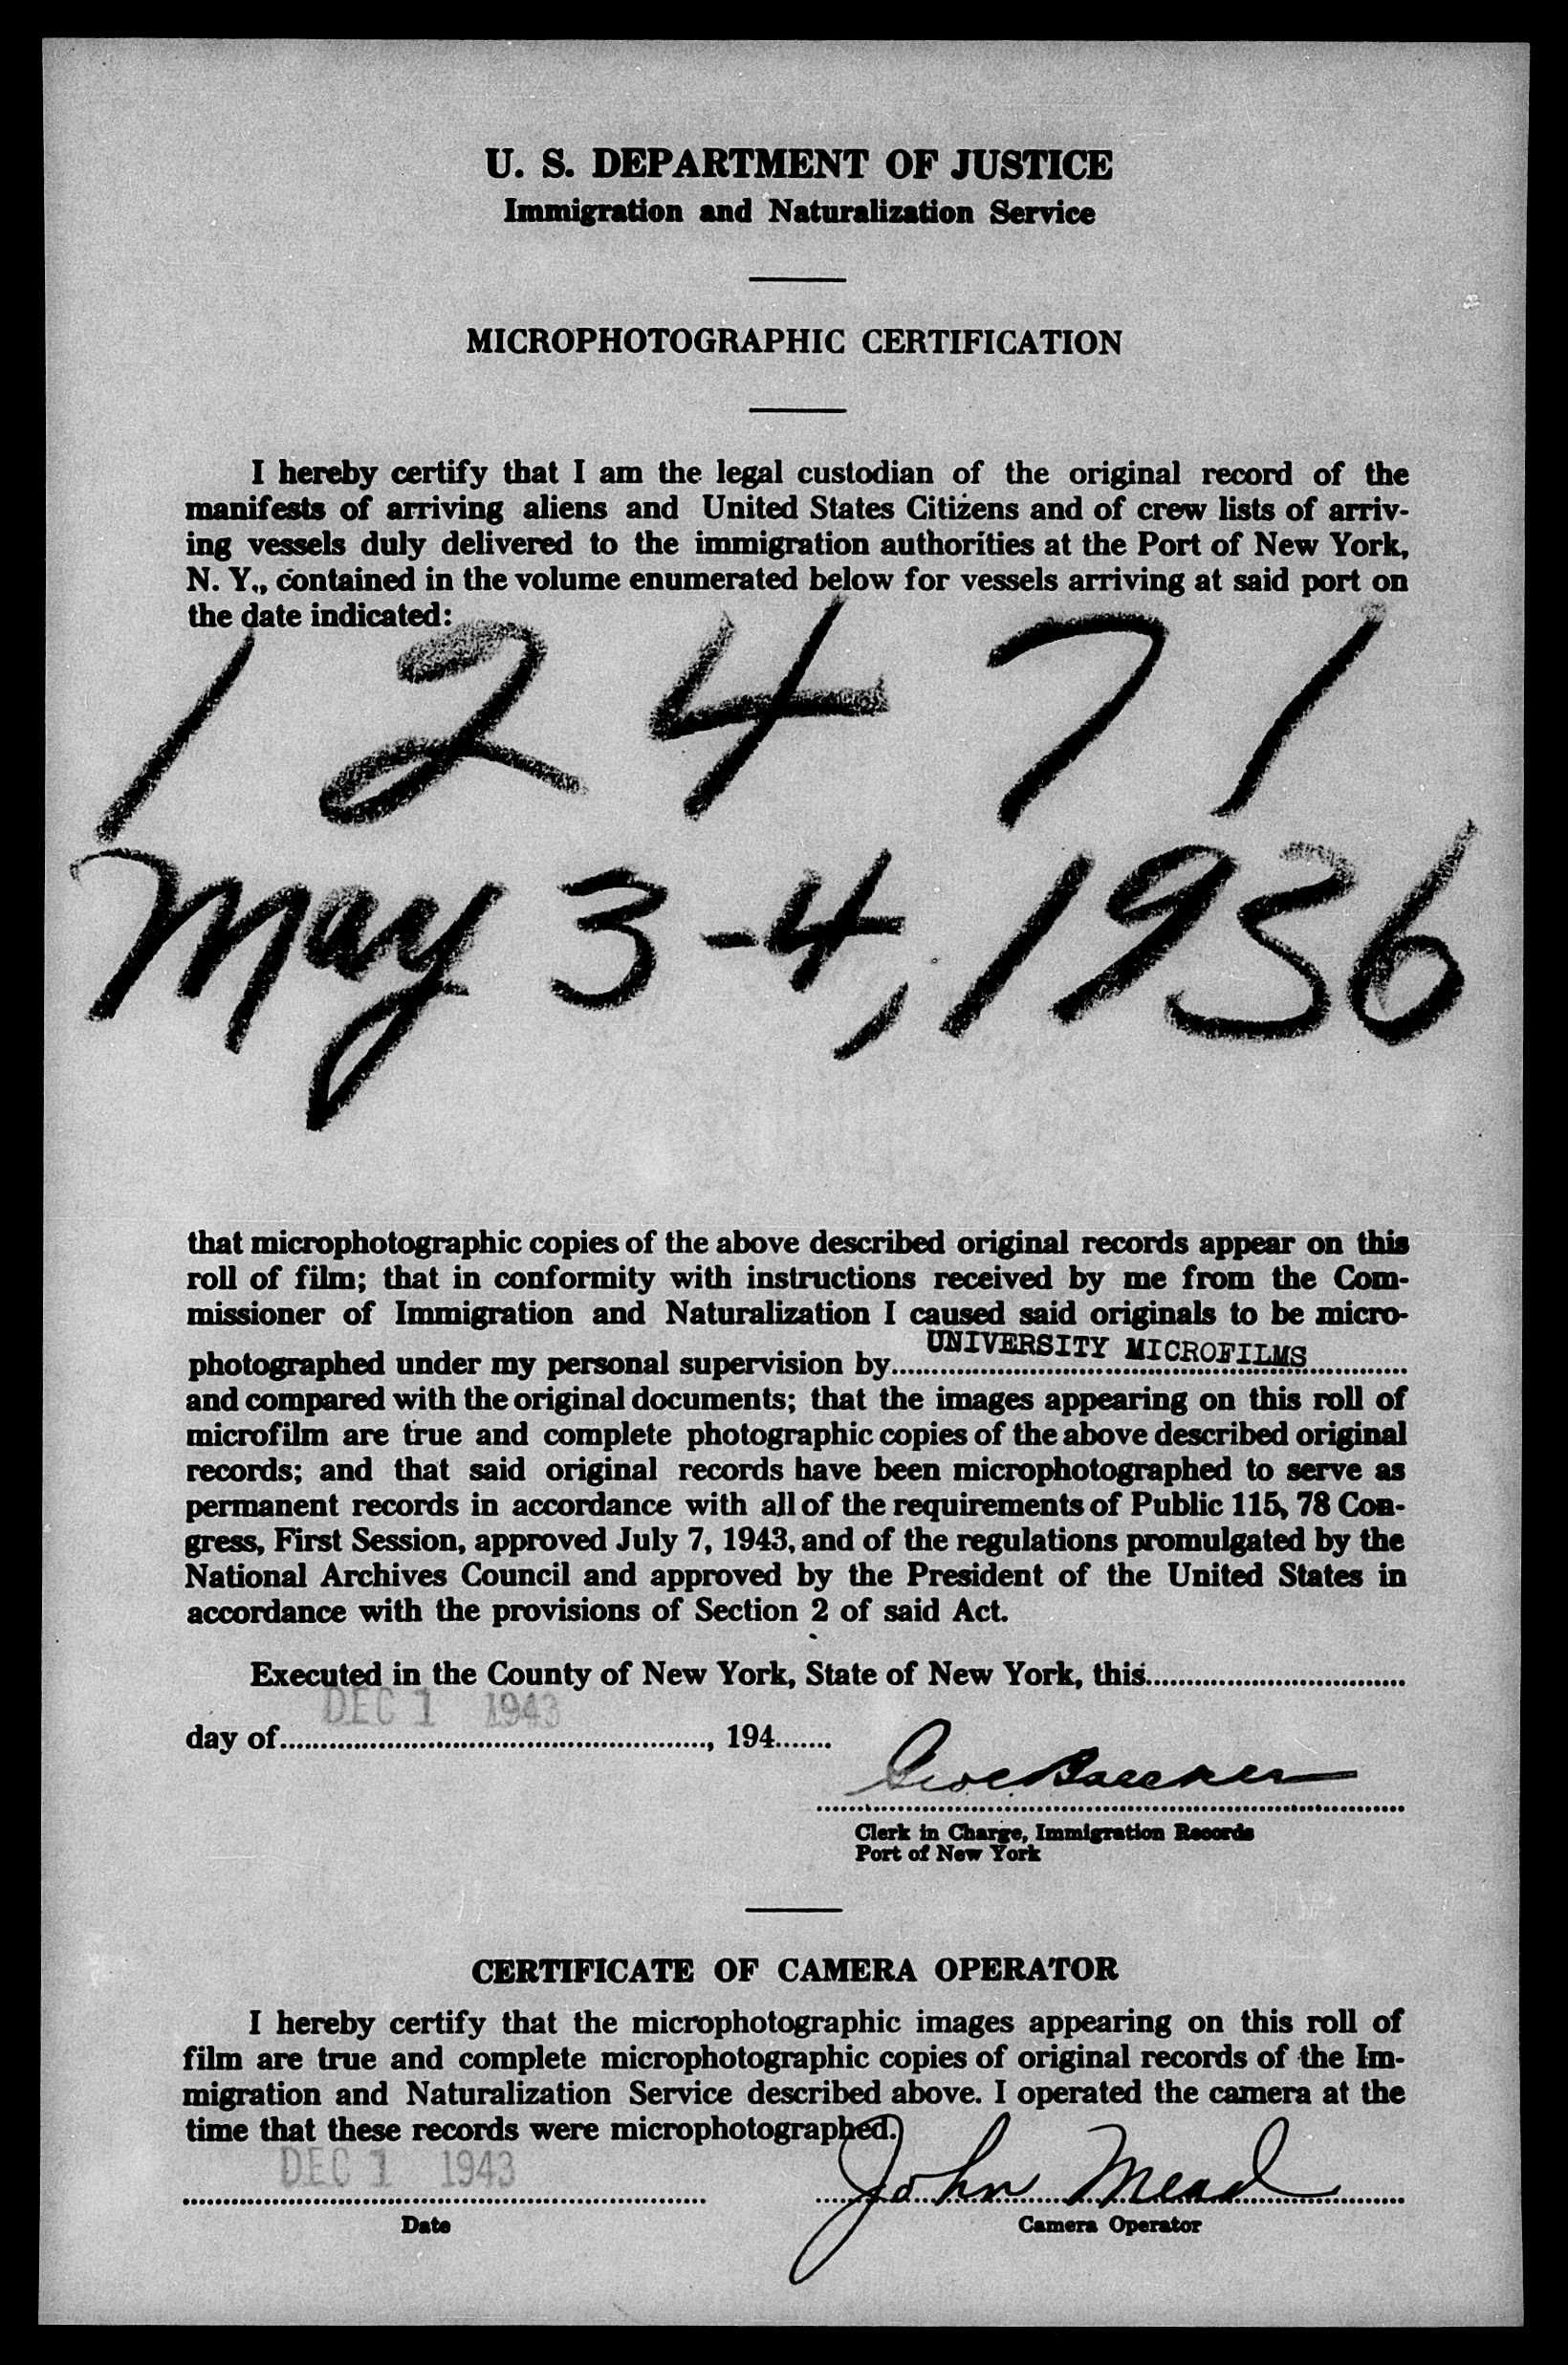 U. S. DEPARTMENT OF JUSTICE
Immigration and Naturalization Service
MICROPHOTOGRAPHIC CERTIFICATION
I hereby certify that I am the legal custodian of the original record of the
manifests of arriving aliens and United States Citizens and of crew lists of arriv-
ing vessels duly delivered to the immigration authorities at the Port of New York,
N. Y., contained in the volume enumerated below for vessels arriving at said port on
the date indicated:
1 2 4 7 1
May 3-4, 1936
that microphotographic copies of the above described original records appear on this
roll of film; that in conformity with instructions received by me from the Com-
missioner of Immigration and Naturalization I caused said originals to be micro-
photographed under my personal supervision by UNIVERSITY MICROFILMS
and compared with the original documents; that the images appearing on this roll of
microfilm are true and complete photographic copies of the above described original
records; and that said original records have been microphotographed to serve as
permanent records in accordance with all of the requirements of Public 115, 78 Con-
gress, First Session, approved July 7, 1943, and of the regulations promulgated by the
National Archives Council and approved by the President of the United States in
accordance with the provisions of Section 2 of said Act.
Executed in the County of New York, State of New York, this
DEC 1 1943
day of, 194
Clerk in Charge, Immigration Records
Port of New York
CERTIFICATE OF CAMERA OPERATOR
I hereby certify that the microphotographic images appearing on this roll of
film are true and complete microphotographic copies of original records of the Im-
migration and Naturalization Service described above. I operated the camera at the
time that these records were microphotographed.
DEC 1 1943
John Mead
Date
Camera Operator